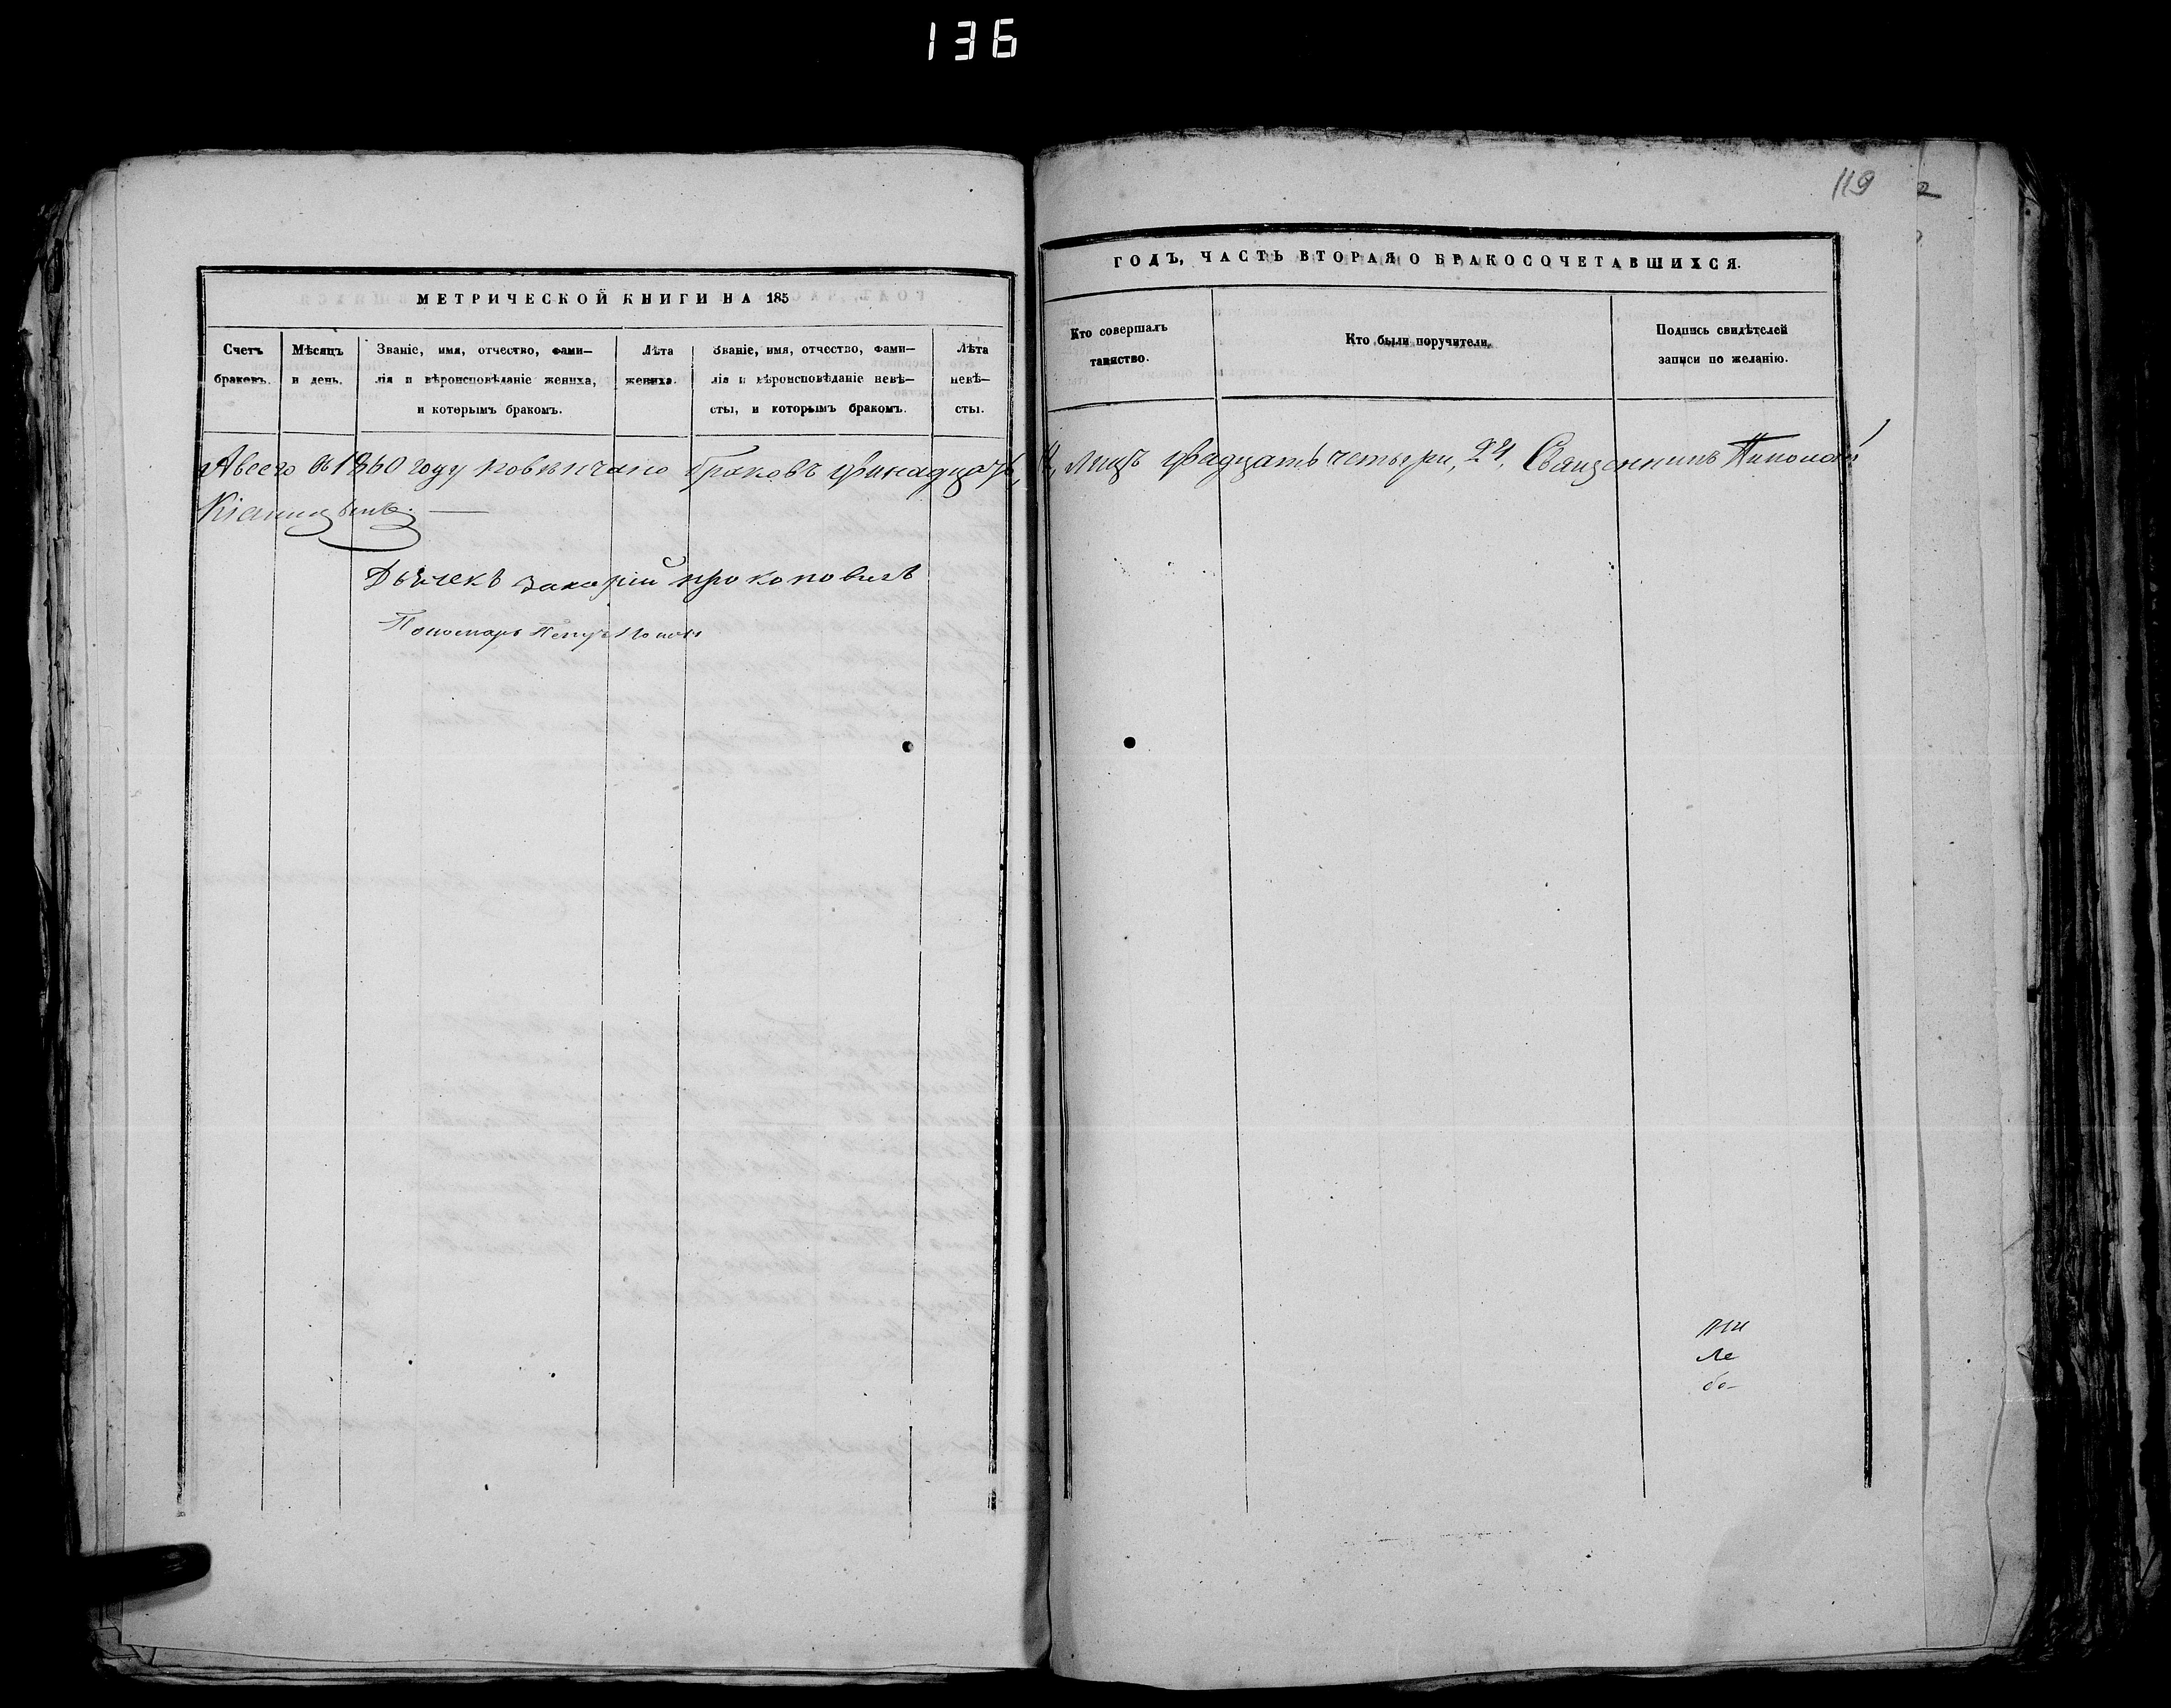 136
119
МЕТРИЧЕСКОЙ КНИГИ НА 185
ГОДЪ, ЧАСТЬ ВТОРАЯ О БРАКОСОЧЕТАВШИХСЯ.
Счетъ браковъ.
Мѣсяцъ и день.
Званіе, имя, отчество, фами—
лія и вѣроисповѣданіе жениха,
и которымъ бракомъ.
Лѣта
жениха.
Званіе, имя, отчество, фами—
лія и вѣроисповѣданіе невѣ—
сты, и которымъ бракомъ.
Лѣта
невѣ—
сты.
Кто совершалъ
таинство.
Кто были поручители.
Подпись свидѣтелей
записи по желанію.
А всего въ 1860 году повѣнчано браковъ двенадцать, лицъ двадцать четыри, 24, Священникъ Николай
Дьячекъ Захарій Прокоповичъ
Пономарь Петръ
ни
ле
бо-